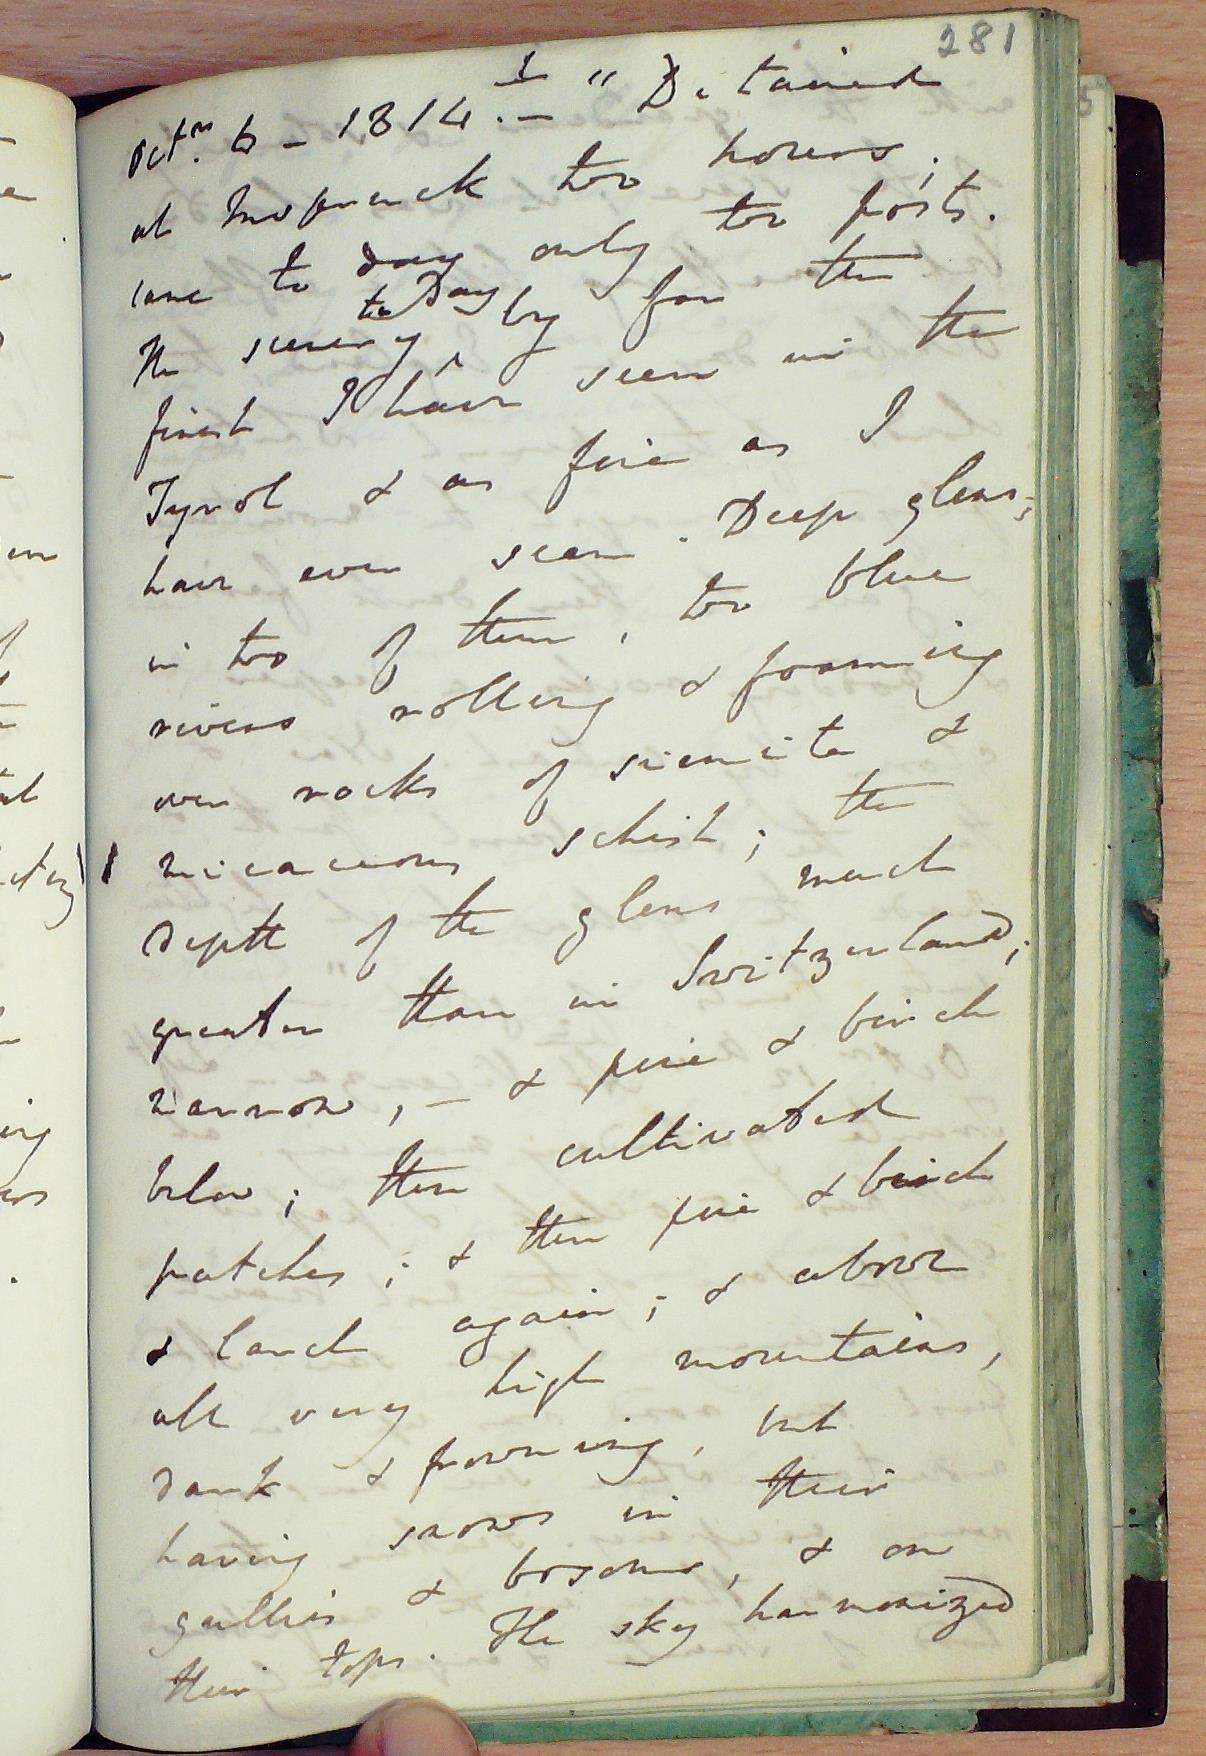 281
Octr. 6 - 1814. - " Detained
at Inspruck two hours;
came to day only two posts.
to Day
The scenery ^ by far the
finest I have seen in the
Tyrol & as fine as I
have ever seen. Deep glens;
in two of them, two blue
rivers rolling & foaming
over rocks of sienite &
micaceous schist; the
Depth of the glens much
greater than in Switzerland;
narrow, - & pine & birch
below; then cultivated
patches; & then pine & birch
& larch again; & above
all very high mountains,
dark & frowning, but
having snows in their
gullies & bosoms, & on
their tops. The sky harmonized